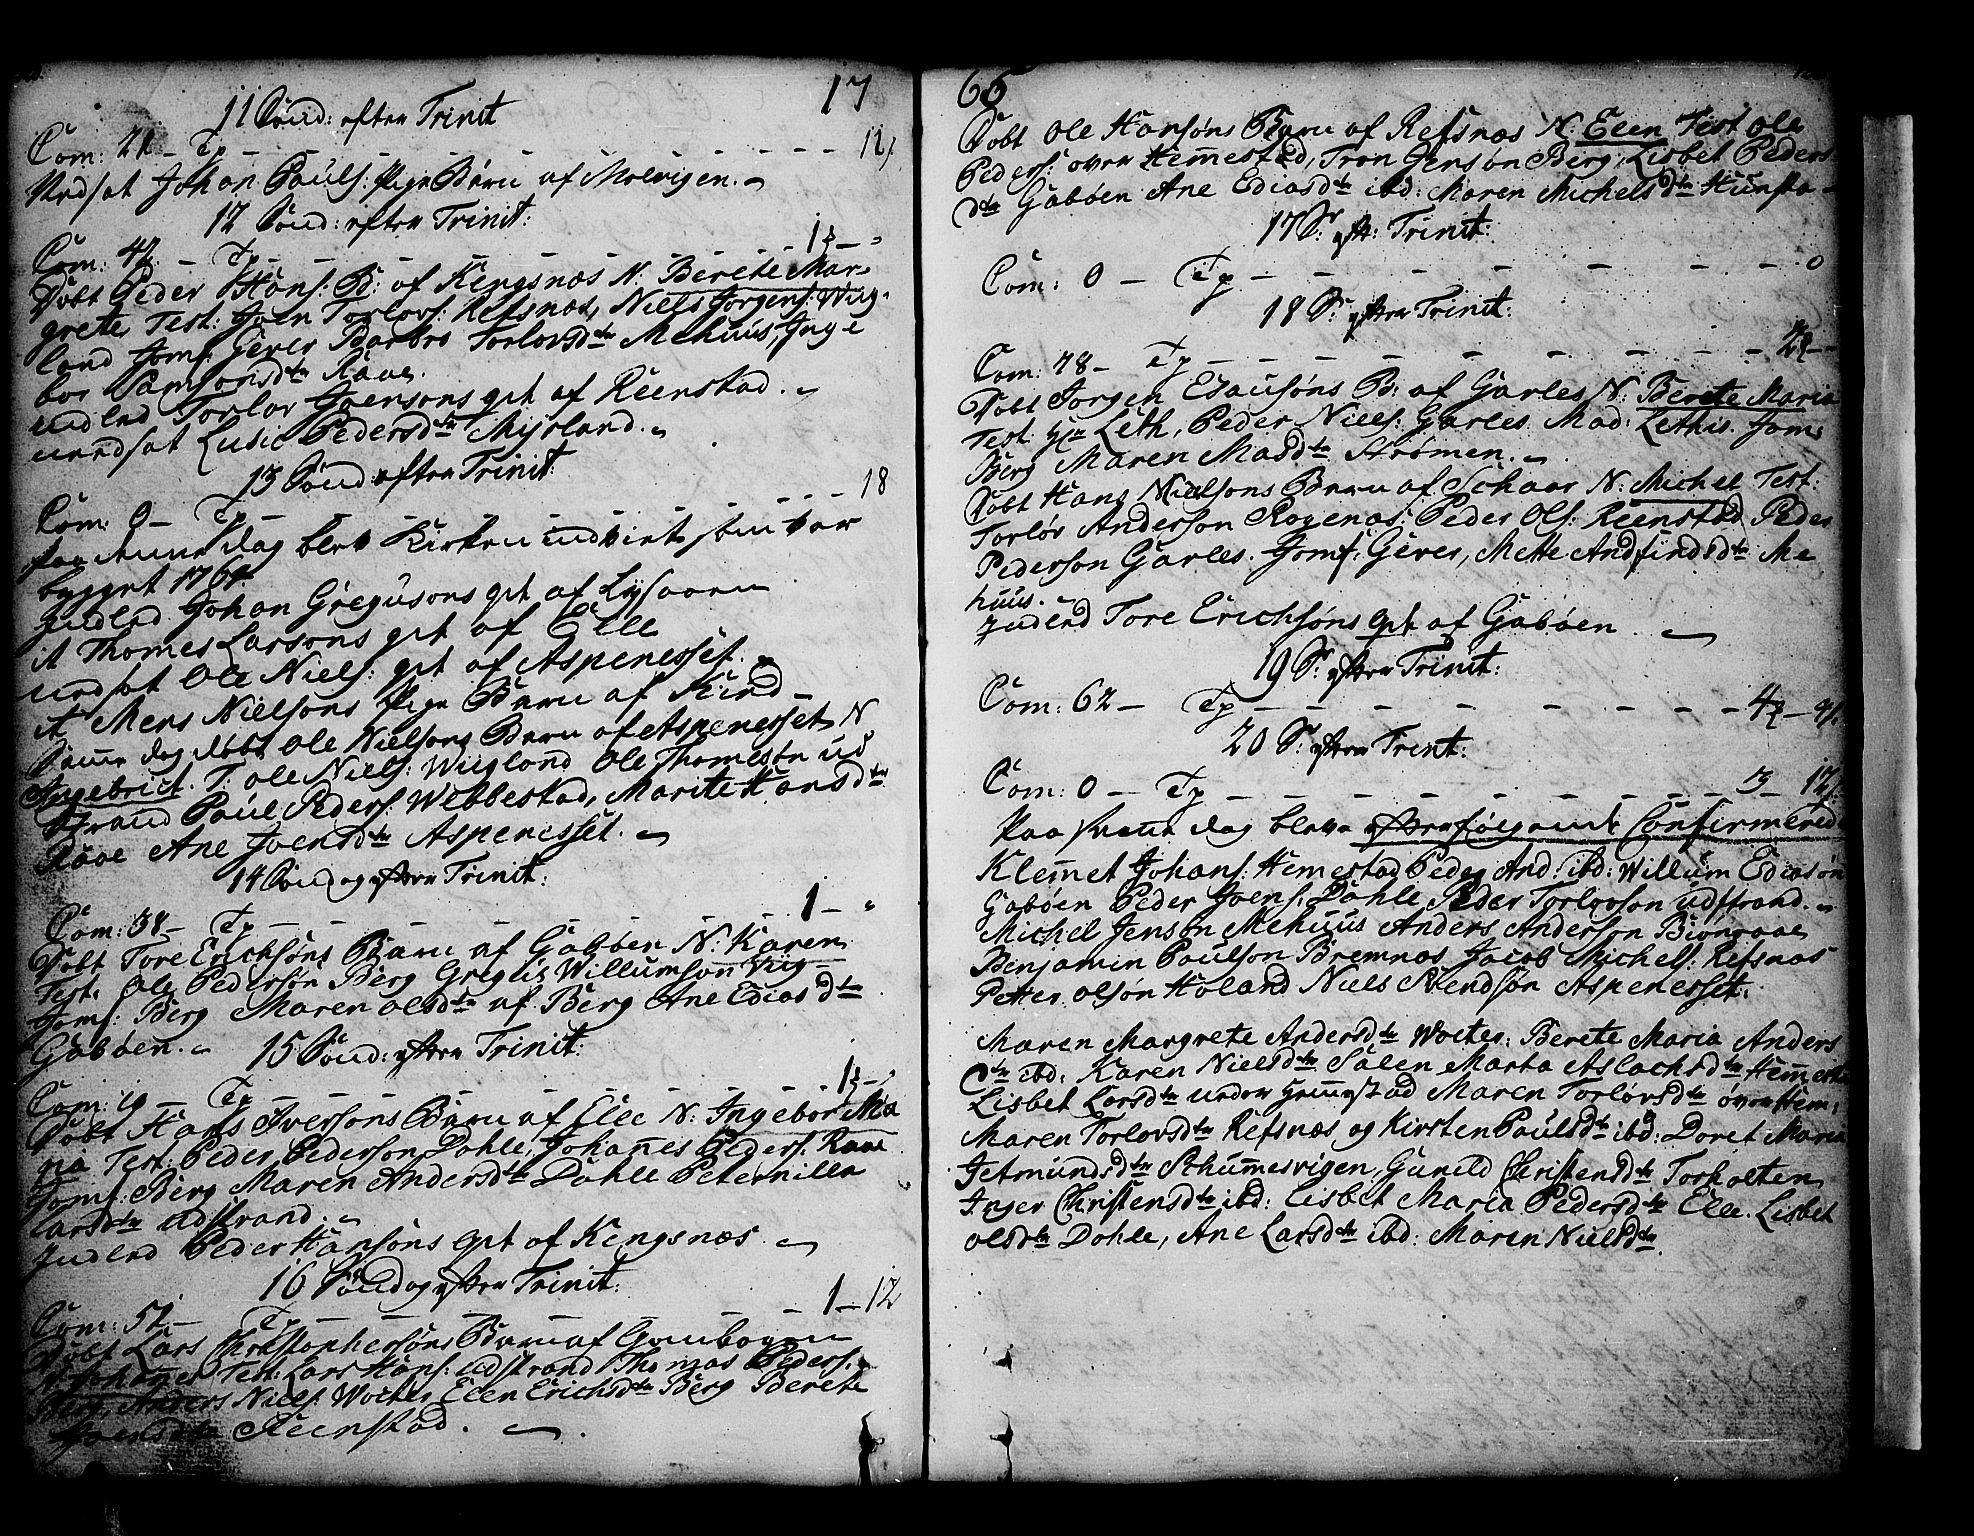 17
11 Sønd: efter Trinit
Com: 21 – Tp – – – 12
Nedsat Johan Pouls: Pige Barn af Molvigen.
12 Sønd: efter Trinit:
Com: 42 – Tp – – – 1
Døbt Peder Hans: B: af Kengsnæs N. Berete Mar-
grete Test: Joen Torlovs: Refsnæs, Niels Jorgens: Wiig-
land Jomf: Gever Barbro Torlovsdtr Mehuus, Inge
bor Samsonsdtr Raae.
indled Torlov Joensons qvt af Reenstad.
nedsat Lusie Pedersdtr Myrland.
13 Sønd: efter Trinit:
Com: 0 – Tp – – – 18
paa denne dag blev Kirken indviet som var
bygget 1764
Indled Johan Gregusons qvt af Lysaaen
it Thomes Larsons qvt af Elle
nedsat Ole Niels: qvt af Aspenesset.
it Mens Nielsons Pige Barn af Kind
Samme dag døbt Ole Nielsons Barn af Aspenesset N
Ingebrict. T: Ole Niels: Wiigland Ole Thomesøn ud
strand Poul Peders: Webbestad, Marite Hansdtr
Raae Ane Joensdtr Aspenesset.
14 Søndag efter Trinit:
Com: 38 – Tp – – – 1 –
Døbt Tore Erichsøns Barn af Gabøen N: Karen
Test. Ole Pedersøn Berg Greglis Willumsøn Viig
Jomf: Berg Maren Olsdtr af Berg Ane Ediasdtr
Gabøen.
15 Sønd: efter Trinit:
Com: 19 – Tp – – – 1
Døbt Hans Iversons Barn af Elle N: Ingebor Ma
ria Test: Peder Pederson Dahle, Johannes Peders: Raae
Jomf: Berg Maren Andersdtr Dahle Peternilla
Larsdtr Udstrand.
Indled Peder Hansøns qvt af Kengsnæs
16 Søndag efter Trinit:
Com: 52 – Tp – – – 1 – 12
Døbt Lars Christophersøns Barn af
N Johanes Test: Lars Hans: Udstrand Thomas Peders:
Berg, Anders Niels: Wolter Elen Erichsdtr Berg Berete
Joensdtr Reenstad.
65
Døbt Ole Hansøns Barn af Refsnæs N: Elen Test Ole
Peders: over Hemestad, Tron Jenson Berg, Lisbet Peders
dtr Gabøen Ane Ediasdtr ibd: Maren Michelsdtr Hunsta
17 S: eft: Trinit:
Com: 0 – Tp – – – 0
18 S: efter Trinit:
Com: 78 – Tp – – – 2
Døbt Jorgen Edausøns B: af Garles N: Berete Maria
Test: Hr Leth, Peder Niels: Garles Mad: Lethis. Jomf
Berg Maren Masdtr Strømen.
Døbt Hans Nielsons Barn af Schaar N: Michel Test:
Torløv Anderson Rogenæs, Peder Ols: Reenstad, Peder
Pederson Garles. Jomf: Gever, Mette Andfindsdtr Me
huus.
Indled Tore Erichsøns qvt af Gabøen
19 S: efter Trinit:
Com: 62 – Tp – – – 4
20 S: efter Trinit:
Com: 0 – Tp – – – 3 – 12
Paa denne dag bleve efterfølgende Confirmered
Klemet Johans: Hemestad Peder And: ibd: Willum Ediasøn
Gabøen Peder Joens: Dahle Peder Torlovson Udstrand.
Michel Jenson Mehuus Anders Anderson Biongaae
Benjamin Poulson Bremnæs Jacob Michels: Refsnæs
Petter Olsøn Holand Niels Svendsøn Aspenesset.
Maren Margrete Andersdtr Wolter: Berete Maria Anders
dtr ibd: Karen Nielsdtr Salen Marta Aslachsdtr Hemesta
Lisbet Larsdtr under Hemestad Maren Torlovsdtr over Hem:
Maren Torlovsdtr Refsnæs og Kirsten Poulsdtr ibd: Doret Maria
Jetmundsdtr Stumesvigen, Gunild Christensdtr Torholten
Inger Christensdtr ibd: Lisbet Maria Pedersdtr Elle. Lisbet
Olsdtr Dahle, Ane Larsdtr ibd: Maren Nielsdtr.